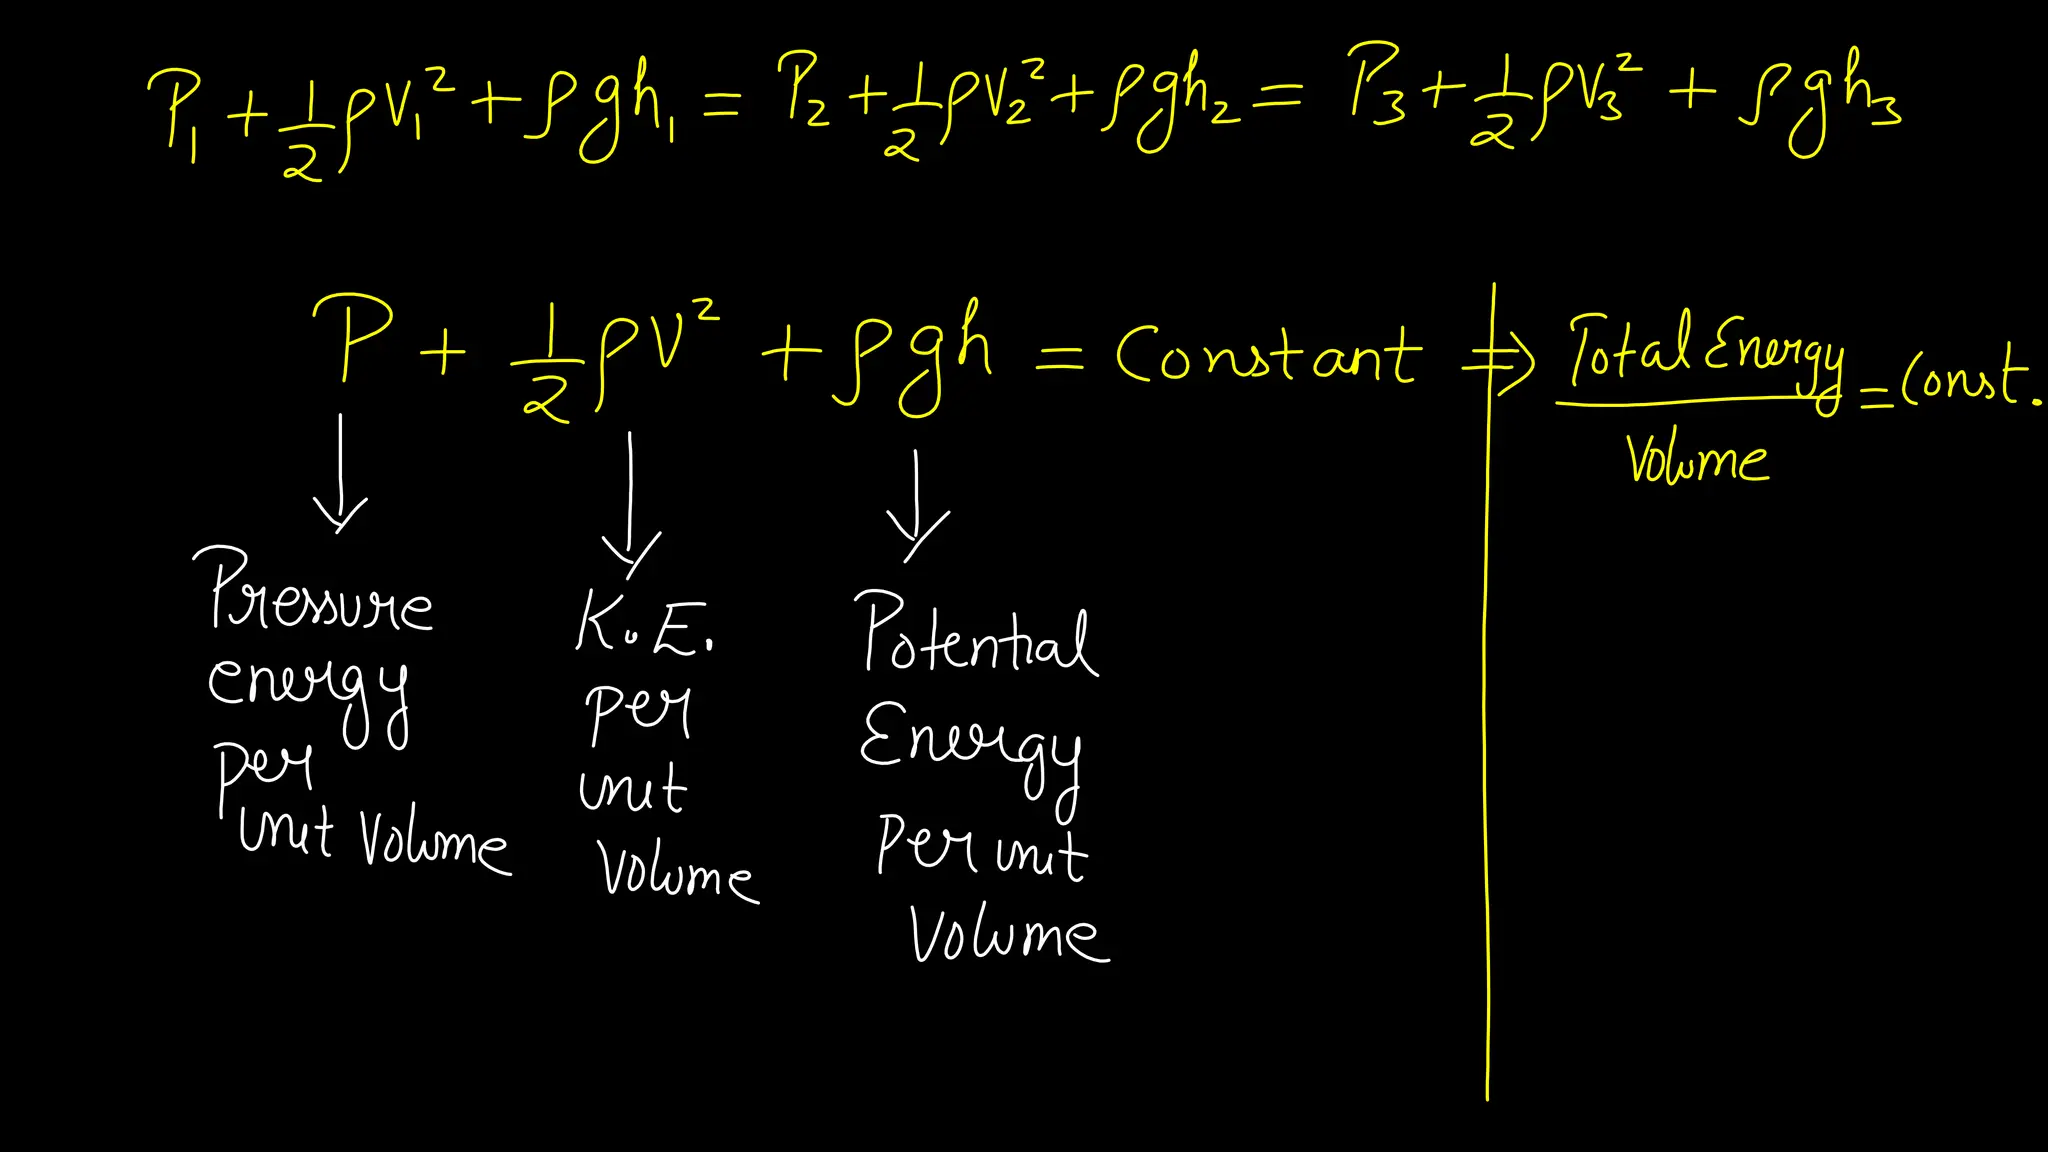 P₁ + 1/2 ρv₁² + ρgh₁ = P₂ + 1/2 ρv₂² + ρgh₂ = P₃ + 1/2 ρv₃² + ρgh₃
P + 1/2 ρv² + ρgh = Constant ⇒ Total Energy / Volume = Const.
Pressure
energy
per
unit volume
K.E.
per
unit
volume
Potential
Energy
per unit
volume